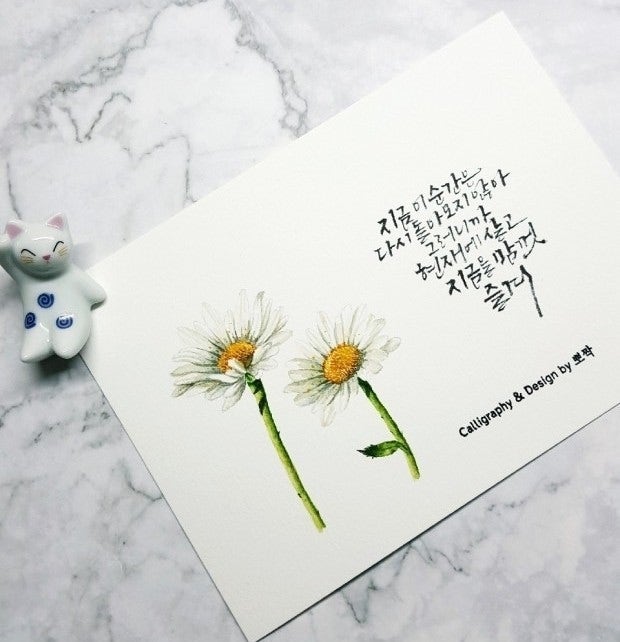 지금 이 순간은
다시 돌아오지 않아
그러니까
현재에 살고
지금을 맘껏
즐겨
Calligraphy & Design by 뽀짝